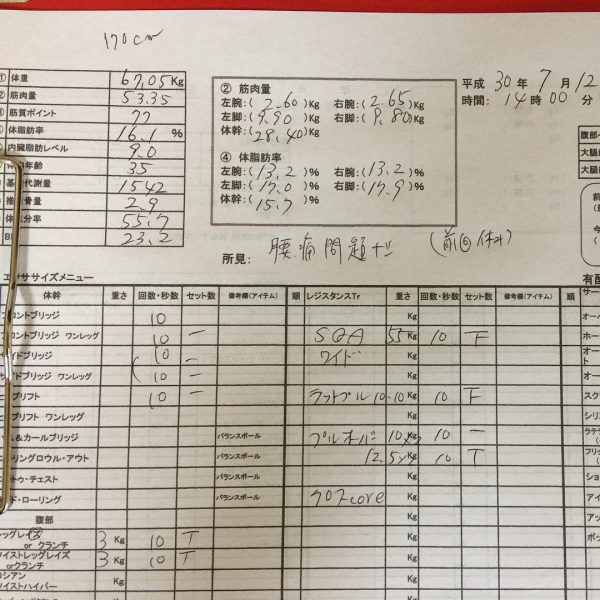 170cm
① 体重 67.05Kg
筋肉量 53.35
筋質ポイント 77
体脂肪率 16.1 %
内臓脂肪レベル 9.0
年齢 35
代謝量 1542
骨量 2.9
分率 55.7
23.2
② 筋肉量
左腕:( 2.60 )Kg 右腕:( 2.65 )Kg
左脚:( 9.90 )Kg 右脚:( 9.80 )Kg
体幹:( 28.40 )Kg
④ 体脂肪率
左腕:( 13.2 )% 右腕:( 13.2 )%
左脚:( 17.0 )% 右脚:( 17.9 )%
体幹:( 15.7 )%
平成 30 年 7 月 12
時間: 14時 00 分
腹部
大腿
大腿
前
今
所見: 腰痛問題ナシ (前回休み)
エクササイズメニュー
有酸
体幹 重さ 回数・秒数 セット数 備考欄(アイテム) 順 レジスタンスTr 重さ 回数・秒数 セット数 備考欄(アイテム) 順
フロントブリッジ 10 Kg オーバ
フロントブリッジ ワンレッグ 10 一 SQA 55Kg 10 下 ホー
イドブリッジ 10 ワイド Kg オート
イドブリッジ ワンレッグ 10 一 Kg オー
プリフト 10 一 ラットプル 10-10Kg 10 下 スク
プリフト ワンレッグ Kg シリ
&カールブリッジ バランスボール プルオーバー 10Kg 10 一 ラテ
ニリングロウル・アウト バランスボール 12.5Kg 10 下 フリッ
トゥ・チェスト バランスボール Kg ショ
ド・ローリング バランスボール クロスcore Kg アイ
腹部 Kg アッ
レッグレイズ or クランチ 3 Kg 10 下 Kg ボッ
ツイストレッグレイズ orクランチ 3 Kg 10 下 Kg
シアン Kg Kg
イストハイパー Kg